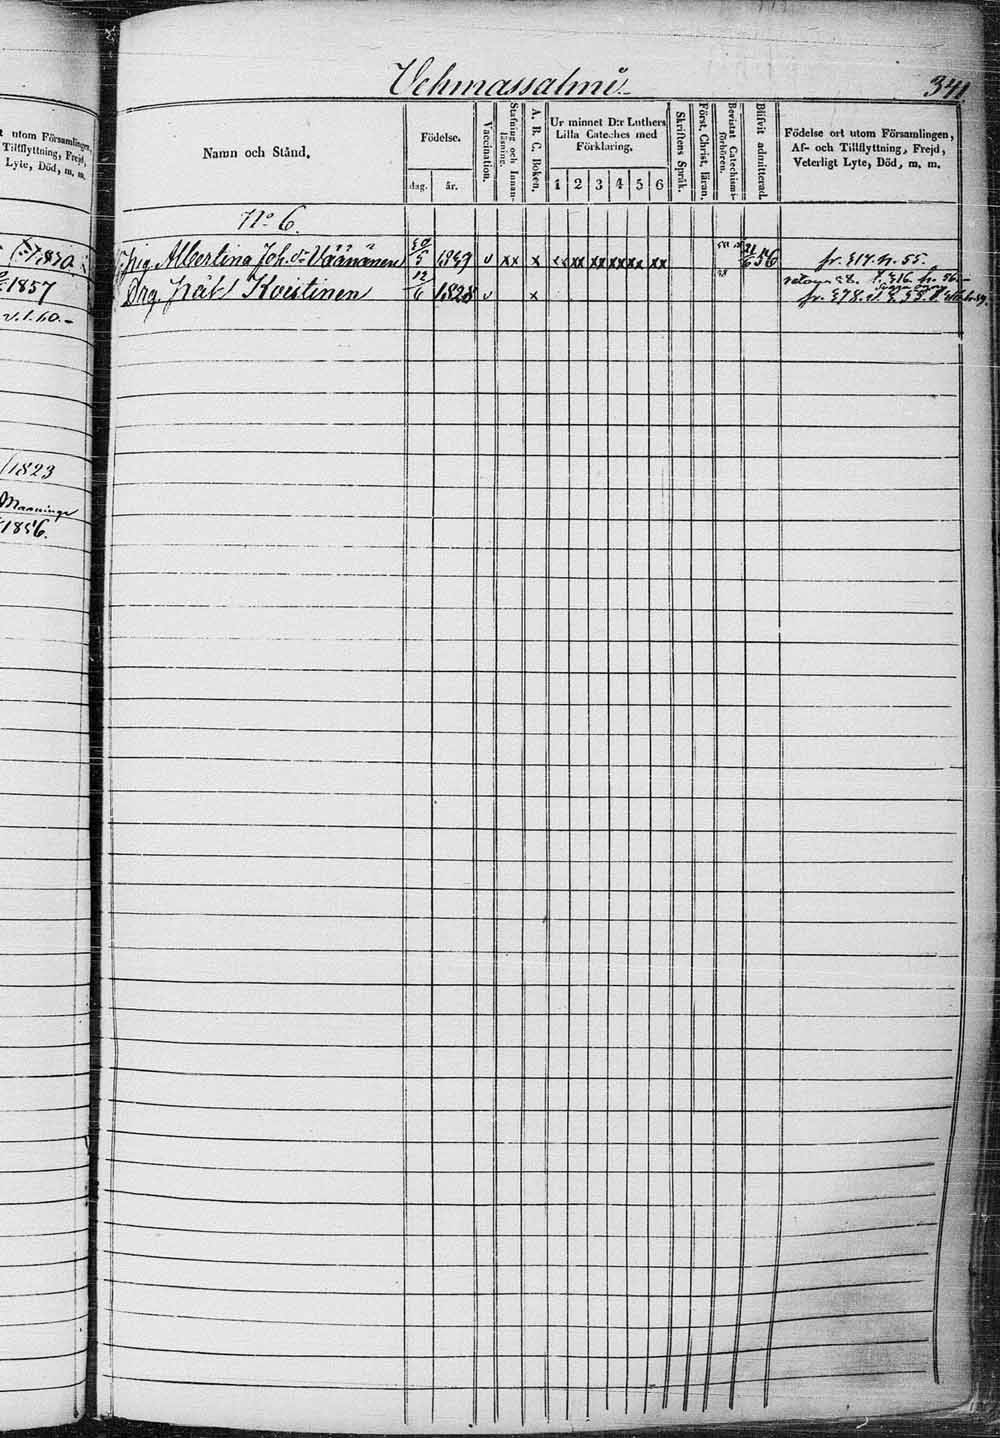 Vehmassalmi
341.
t utom Församlingen,
Tillflyttning, Frejd,
Lyte, Död, m. m.
Namn och Stånd.
Födelse.
dag.
år.
Vaccination.
Stafning och Innan-
läsning.
A. B. C. Boken.
Ur minnet D:r Luthers
Lilla Cateches med
Förklaring.
1 2 3 4 5 6
Skriftens Språk.
Först. Christ. läran.
Bevistat Catechismi-
förhören.
Blifvit admitterad.
Födelse ort utom Församlingen,
Af- och Tillflyttning, Frejd,
Veterligt Lyte, Död, m. m.
No 6.
Pig. Albertina Joh. dr Väänänen 5 1839 v xx x xx xx xx xx xx 56 fr. 517. n. 55.
Drg. Koistinen 12/6 1828 v x
1857
1823
1856.